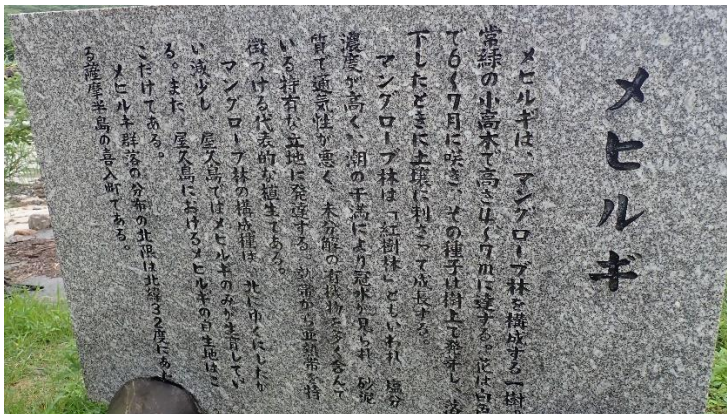 メヒルギ
メヒルギは、マングローブ林を構成する一樹
常緑の小高木で高さ4〜7mに達する。花は白色
で6〜7月に咲き、その種子は樹上で発芽し、落
下したときに土壌に刺さって成長する。
マングローブ林は「紅樹林」ともいわれ、塩分
濃度が高く、潮の干満により冠水が見られ、砂泥
質で通気性が悪く、未分解の有機物を多く含んで
いる特有な立地に発達する、熱帯から亜熱帯を特
徴づける代表的な植生である。
マングローブ林の構成種は、北にゆくにしたが
い減少し、屋久島ではメヒルギのみが生育してい
る。また、屋久島におけるメヒルギの自生地はこ
こだけである。
メヒルギ群落の分布の北限は北緯32度にあた
る薩摩半島の喜入町である。